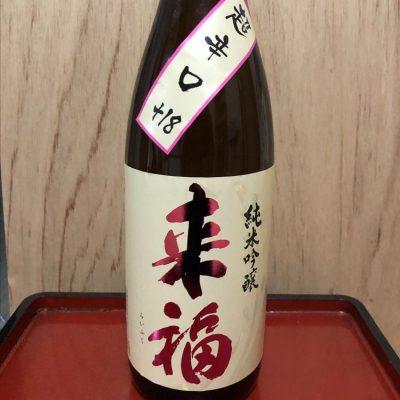 超辛口
+18
純米吟醸
来福
らいふく